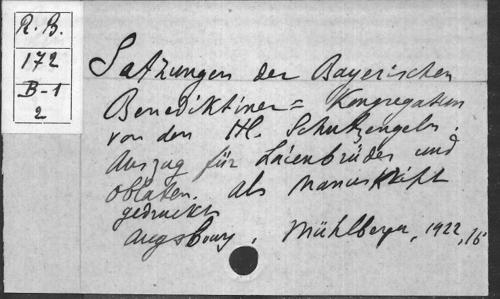 R. B.
172
B-1
2
Satzungen der Bayerischen
Benediktiner = Kongregation
von den Hl. Schutzengeln.
Auszug für Laienbrüder und
Oblaten. Als Manuskript
gedruckt
Augsburg, Mühlberger, 1922, 16°